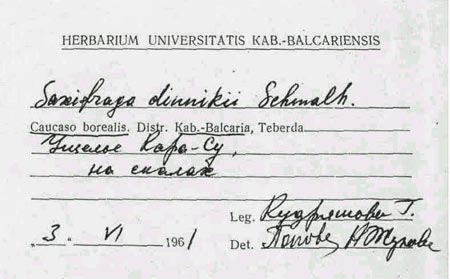 HERBARIUM UNIVERSITATIS KAB.-BALCARIENSIS
Saxifraga dinnikii Schmalh.
Caucaso borealis. Distr. Kab.-Balcaria, Teberda
Ущелье Кара-Су,
на скалах
Leg. Кудряшова Г.
„ 3 " VI 1961 Det. Попова